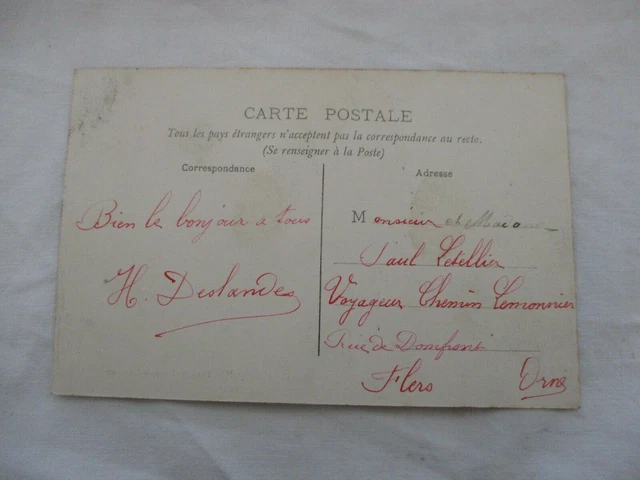 CARTE POSTALE
Tous les pays étrangers n'acceptent pas la correspondance au recto.
(Se renseigner à la Poste)
Correspondance
Bien le bonjour a tous
H. Deslandes
Adresse
Monsieur et Madame
Paul Letellier
Voyageur Chemin Lemonnier
Rue de Domfront
Flers Orne